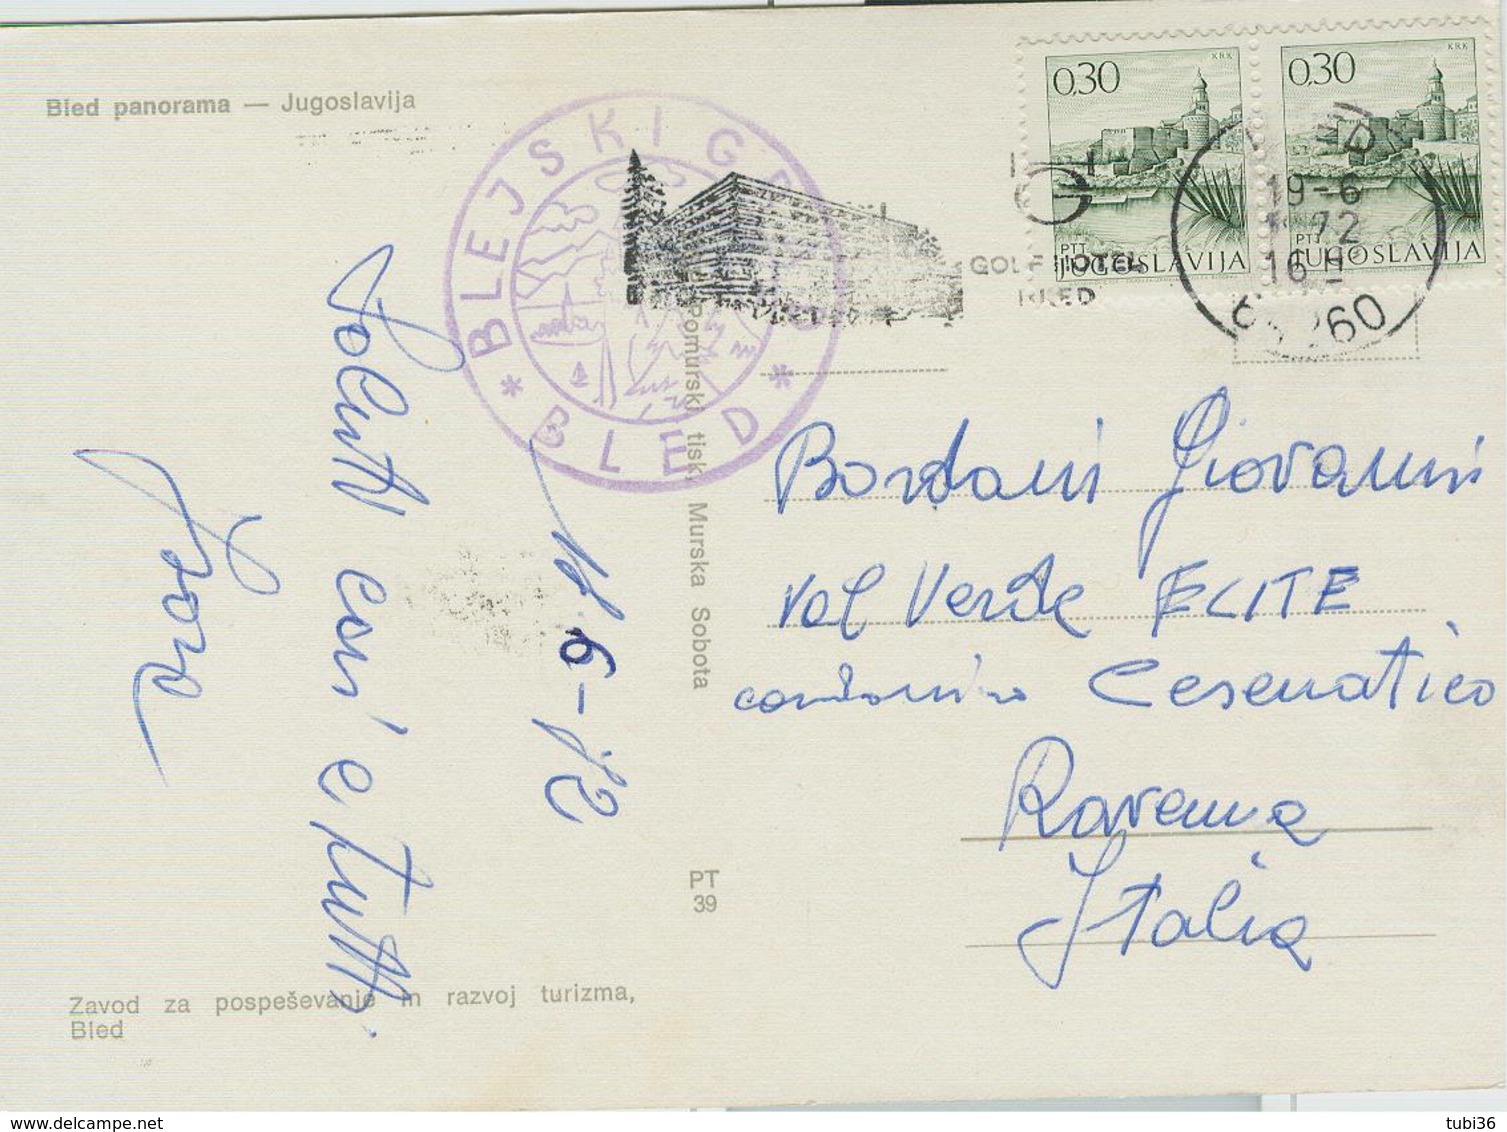 Bled panorama — Jugoslavija
BLEJSKI G
* BLED *
0,30
KRK
PTT
JUGOSLAVIJA
0,30
KRK
PTT
JUGOSLAVIJA
19-6
72
16 H
60
GOLF HOTEL
BLED
Pomurski tisk, Murska Sobota
PT
39
6-72
Saluti
e tutti.
Bordani Giovanni
Val Verde ELITE
Cesenatico
Ravenna
Italia
Zavod za pospeševanje in razvoj turizma,
Bled
tubi36